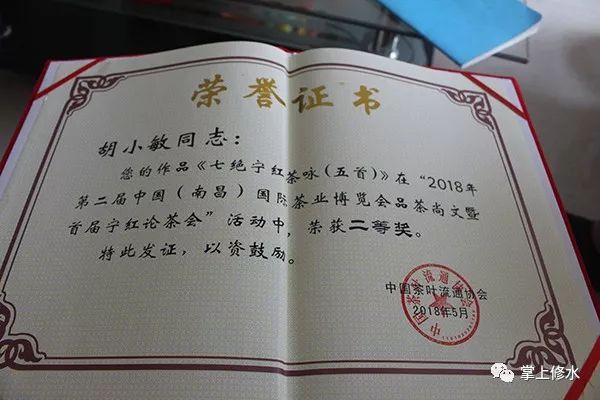 荣誉证书
胡小敏同志:
您的作品《七绝宁红茶咏(五首)》在“2018年
第二届中国(南昌)国际茶业博览会品茶尚文暨
首届宁红论茶会”活动中,荣获二等奖。
特此发证,以资鼓励。
中国茶叶流通协会
2018年5月
中国茶叶流通协会
掌上修水